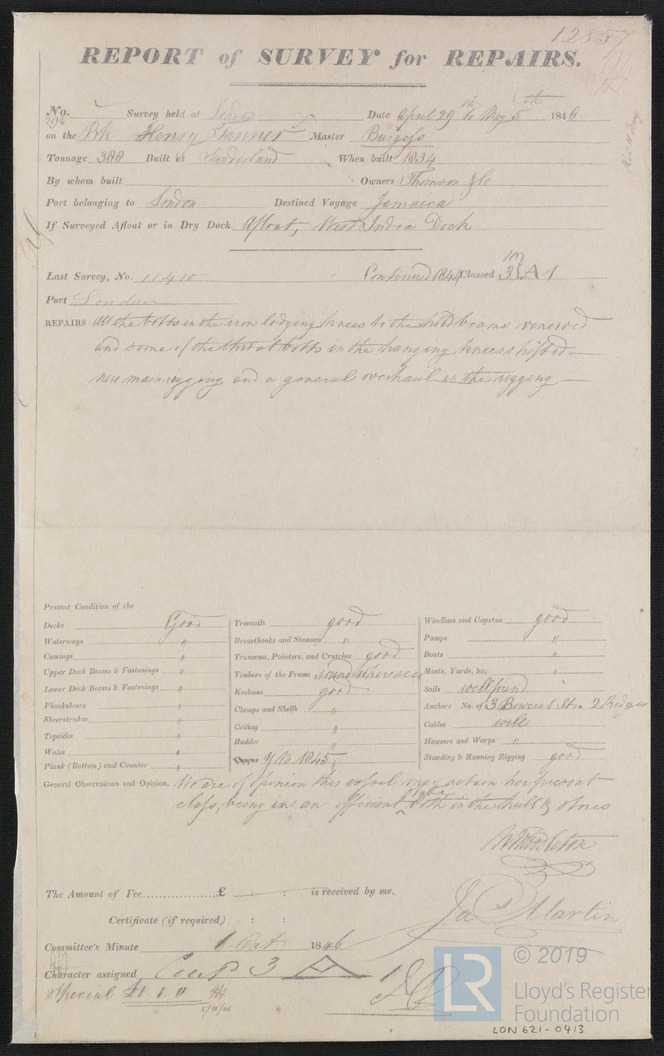 12857
REPORT of SURVEY for REPAIRS.
No. 396 Survey held at Date April 29th to May 5th 1846
on the Bk Henry Tanner Master Burgess
Tonnage 388 Built at Sunderland When built 1834
By whom built Owners Thomson & Co
Port belonging to London Destined Voyage Jamaica
If Surveyed Afloat or in Dry Dock Afloat, West India Dock
Last Survey, No. 11410 Continued 1844 Classed 3 A 1
Port London
REPAIRS All the bolts in the iron lodging knees to the hold beams renewed
and some of the throat bolts in the hanging knees shifted
new main rigging and a general overhaul to the rigging
Present Condition of the
Decks Good
Waterways "
Comings "
Upper Deck Beams & Fastenings "
Lower Deck Beams & Fastenings "
Planksheers "
Sheerstrakes "
Topsides "
Wales "
Plank (Bottom) and Counter "
Treenails good
Breasthooks and Stemson "
Transoms, Pointers, and Crutches good
Timbers of the Frame sound where seen
Keelsons good
Clamps and Shelfs "
Ceiling "
Rudder "
Copper YM 1845
Windlass and Capstan good
Pumps "
Boats "
Masts, Yards, &c. "
Sails well found
Anchors No. of 3 Bowers 1 Strm 2 Kedges
Cables well
Hawsers and Warps "
Standing & Running Rigging good
General Observations and Opinion, We are of opinion this vessel may retain her present
class, being in an efficient state both in the hull & stores
W Middleton
The Amount of Fee £ : : is received by me,
Jas Martin
Certificate (if required) : :
Committee's Minute 6 Oct 1846
Character assigned Cont 3 A 1
Special £1 " "
5/10/46
LR © 2019
Lloyd's Register
Foundation
LON 621-0413